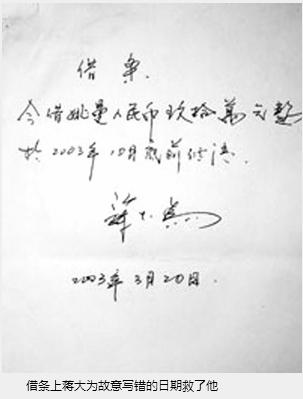 借条
今借姚曼人民币玖拾萬元整
於2003年10月底前付清
蒋大为
2003年3月20日
借条上蒋大为故意写错的日期救了他